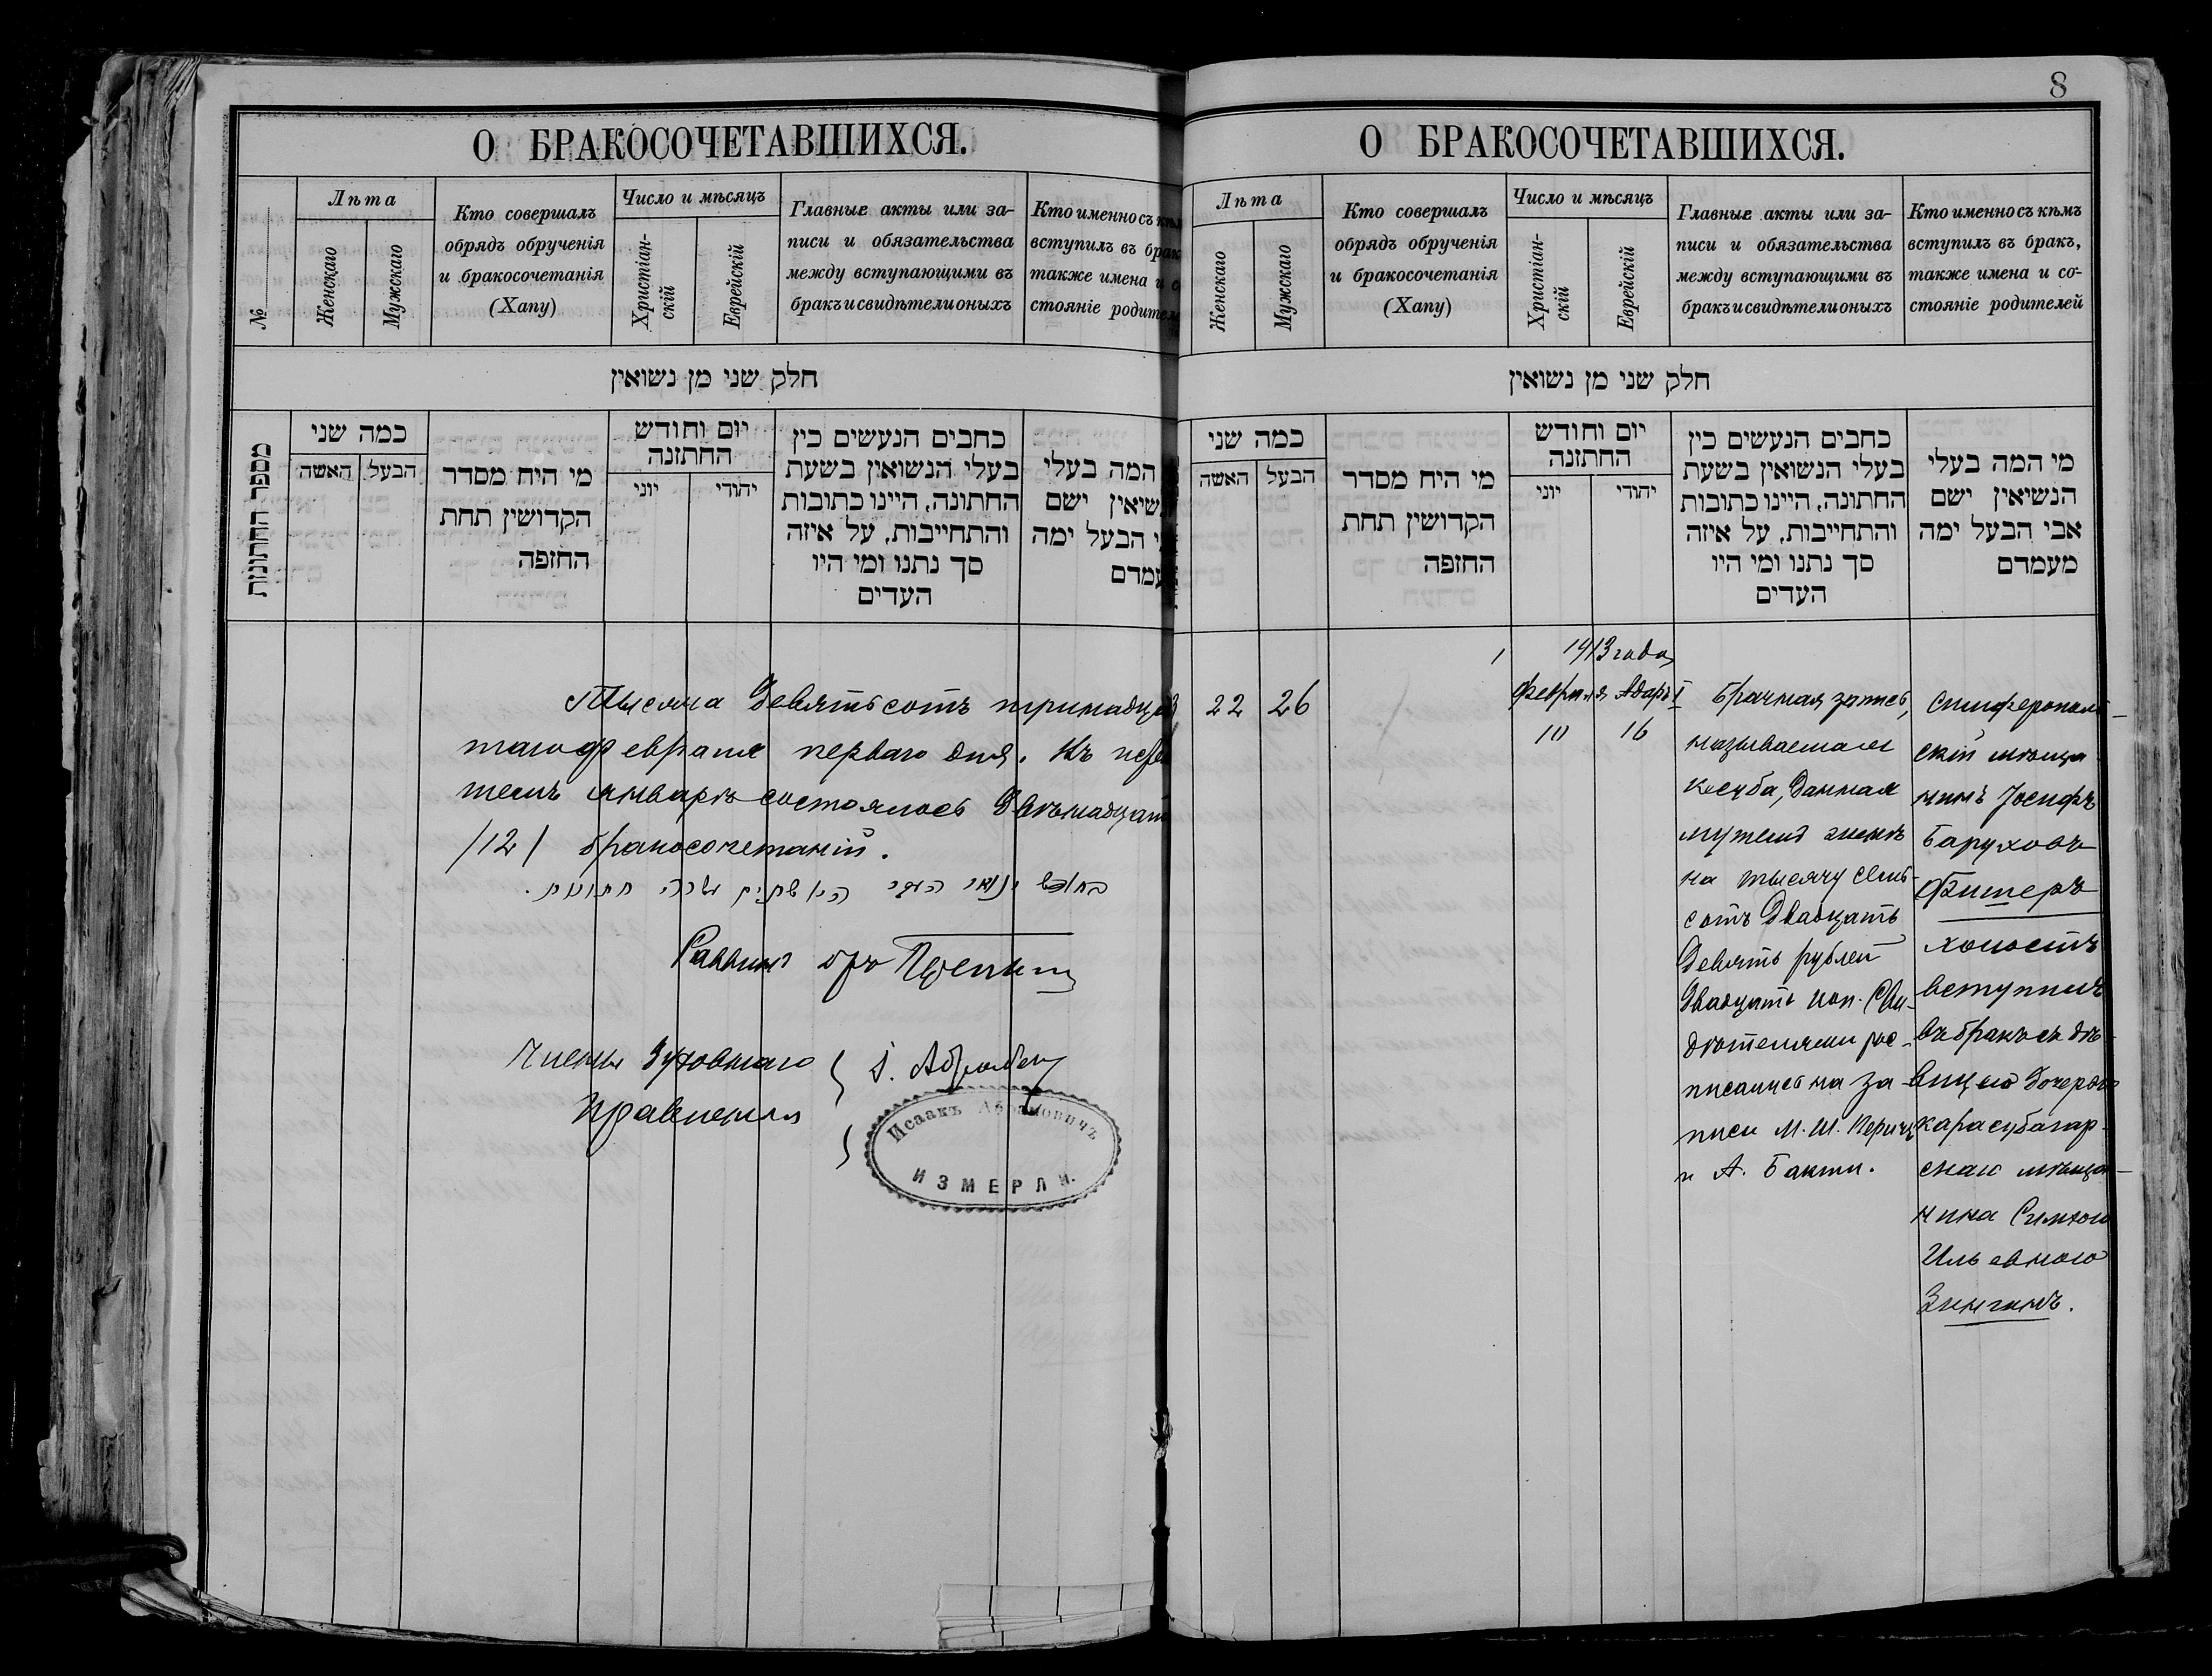 О БРАКОСОЧЕТАВШИХСЯ.
№
Лѣта
Женскаго
Мужскаго
Кто совершалъ
обрядъ обрученія
и бракосочетанія
(Хапу)
Число и мѣсяцъ
Христіан-
скій
Еврейскій
Главные акты или за-
писи и обязательства
между вступающими въ
бракъ и свидѣтели оныхъ
Кто именно съ
вступилъ въ
также имена
стояніе
חלק שני מן נשואין
מספר החתונות
כמה שני
האשה
הבעל
מי היח מסדר
הקדושין תחת
החזפה
יום וחודש
החתזנה
יוני
יהודי
כחבים הנעשים כין
בעלי הנשואין בשעת
החתונה, היינו כתובות
והתחייבות, על איזה
סך נתנו ומי היו
העדים
המה בעלי
ישם
הבעל ימה
Тысяча девятьсотъ
таго февраля перваго дня. Къ
январѣ состоялось
/12/ бракосочетаній.
Раввинъ
Члены Духовнаго
Правленія
Исаакъ Абрамовичъ
ИЗМЕРЛИ.
8
О БРАКОСОЧЕТАВШИХСЯ.
Лѣта
Женскаго
Мужскаго
Кто совершалъ
обрядъ обрученія
и бракосочетанія
(Хапу)
Число и мѣсяцъ
Христіан-
скій
Еврейскій
Главные акты или за-
писи и обязательства
между вступающими въ
бракъ и свидѣтели оныхъ
Кто именно съ кѣмъ
вступилъ въ бракъ,
также имена и со-
стояніе родителей
חלק שני מן נשואין
כמה שני
האשה
הבעל
מי היח מסדר
הקדושין תחת
החזפה
יום וחודש
החתזנה
יוני
יהודי
כחבים הנעשים כין
בעלי הנשואין בשעת
החתונה, היינו כתובות
והתחייבות, על איזה
סך נתנו ומי היו
העדים
מי המה בעלי
הנשיאין ישם
אבי הבעל ימה
מעמדם
22
26
1913 года
Февраля
10
Адаръ I
16
Брачная запись,
называемая
кесуба, данная
мужемъ женѣ
на тысячу семь-
сотъ двадцать
девять рублей
двадцать коп. Сви-
дѣтелями рос-
писались на за-
писи М. Ш.
и А. Бакши.
Симферополь-
скій мѣща-
нинъ Іосифъ
Баруховъ
холостъ
вступилъ
въ бракъ съ дѣ-
вицею дочерью
карасубазар-
скаго мѣща-
нина Симхою
Ильевною